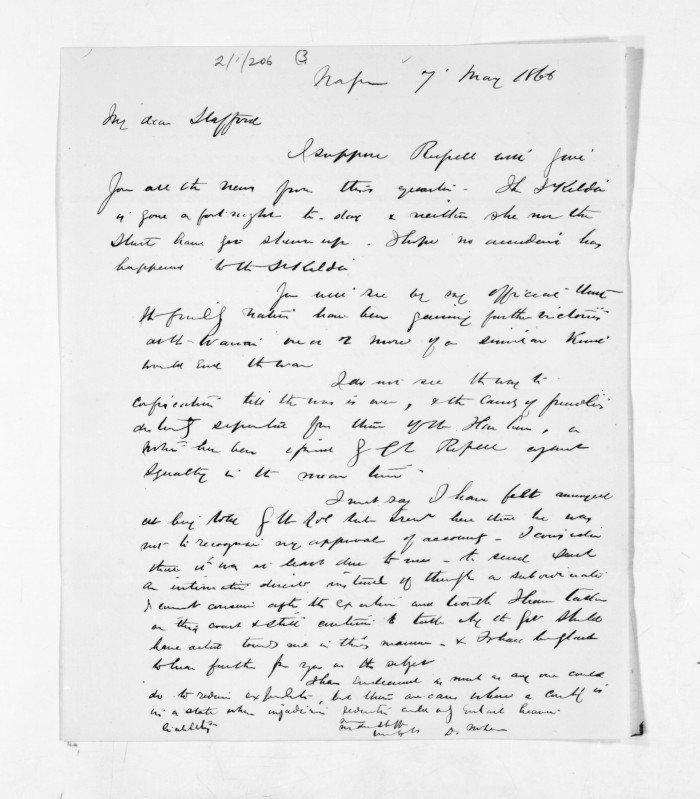 2/1/206 (3
Napier 7 May 1866
My dear Stafford
I suppose Russell will give
you all the news from this quarter - The St Kilda
is gone a fortnight to-day & neither she nor the
Sturt have yet shewn up - I hope no accident has
happened to the St Kilda
You will see by my official that
the friendly natives have been gaining further victories
at the Wairoa one or 2 more of a similar kind
would end the war
I do not see the way to
confiscation till the war is over, & the lands of friendlies
distinctly separated from those of the Hau Hau, a
notice has been opined by Col Russell against
squatting in the mean time -
I must say I have felt annoyed
at being told by the Col sub here that he was
not to recognise my approval of accounts - I consider
that it was at least due to me - to send such
an intimation direct instead of through a subordinate
I cannot conceive after the exertion and trouble I have taken
on this coast & still continue to take why the Govt should
have acted towards me in this manner - & I shall be glad
to hear further from you on the subject
I have endeavoured as much as any one could
do to reduce expenditure, but there are cases where a country is
in a state when injudicious reduction could only entail heavier
liability -